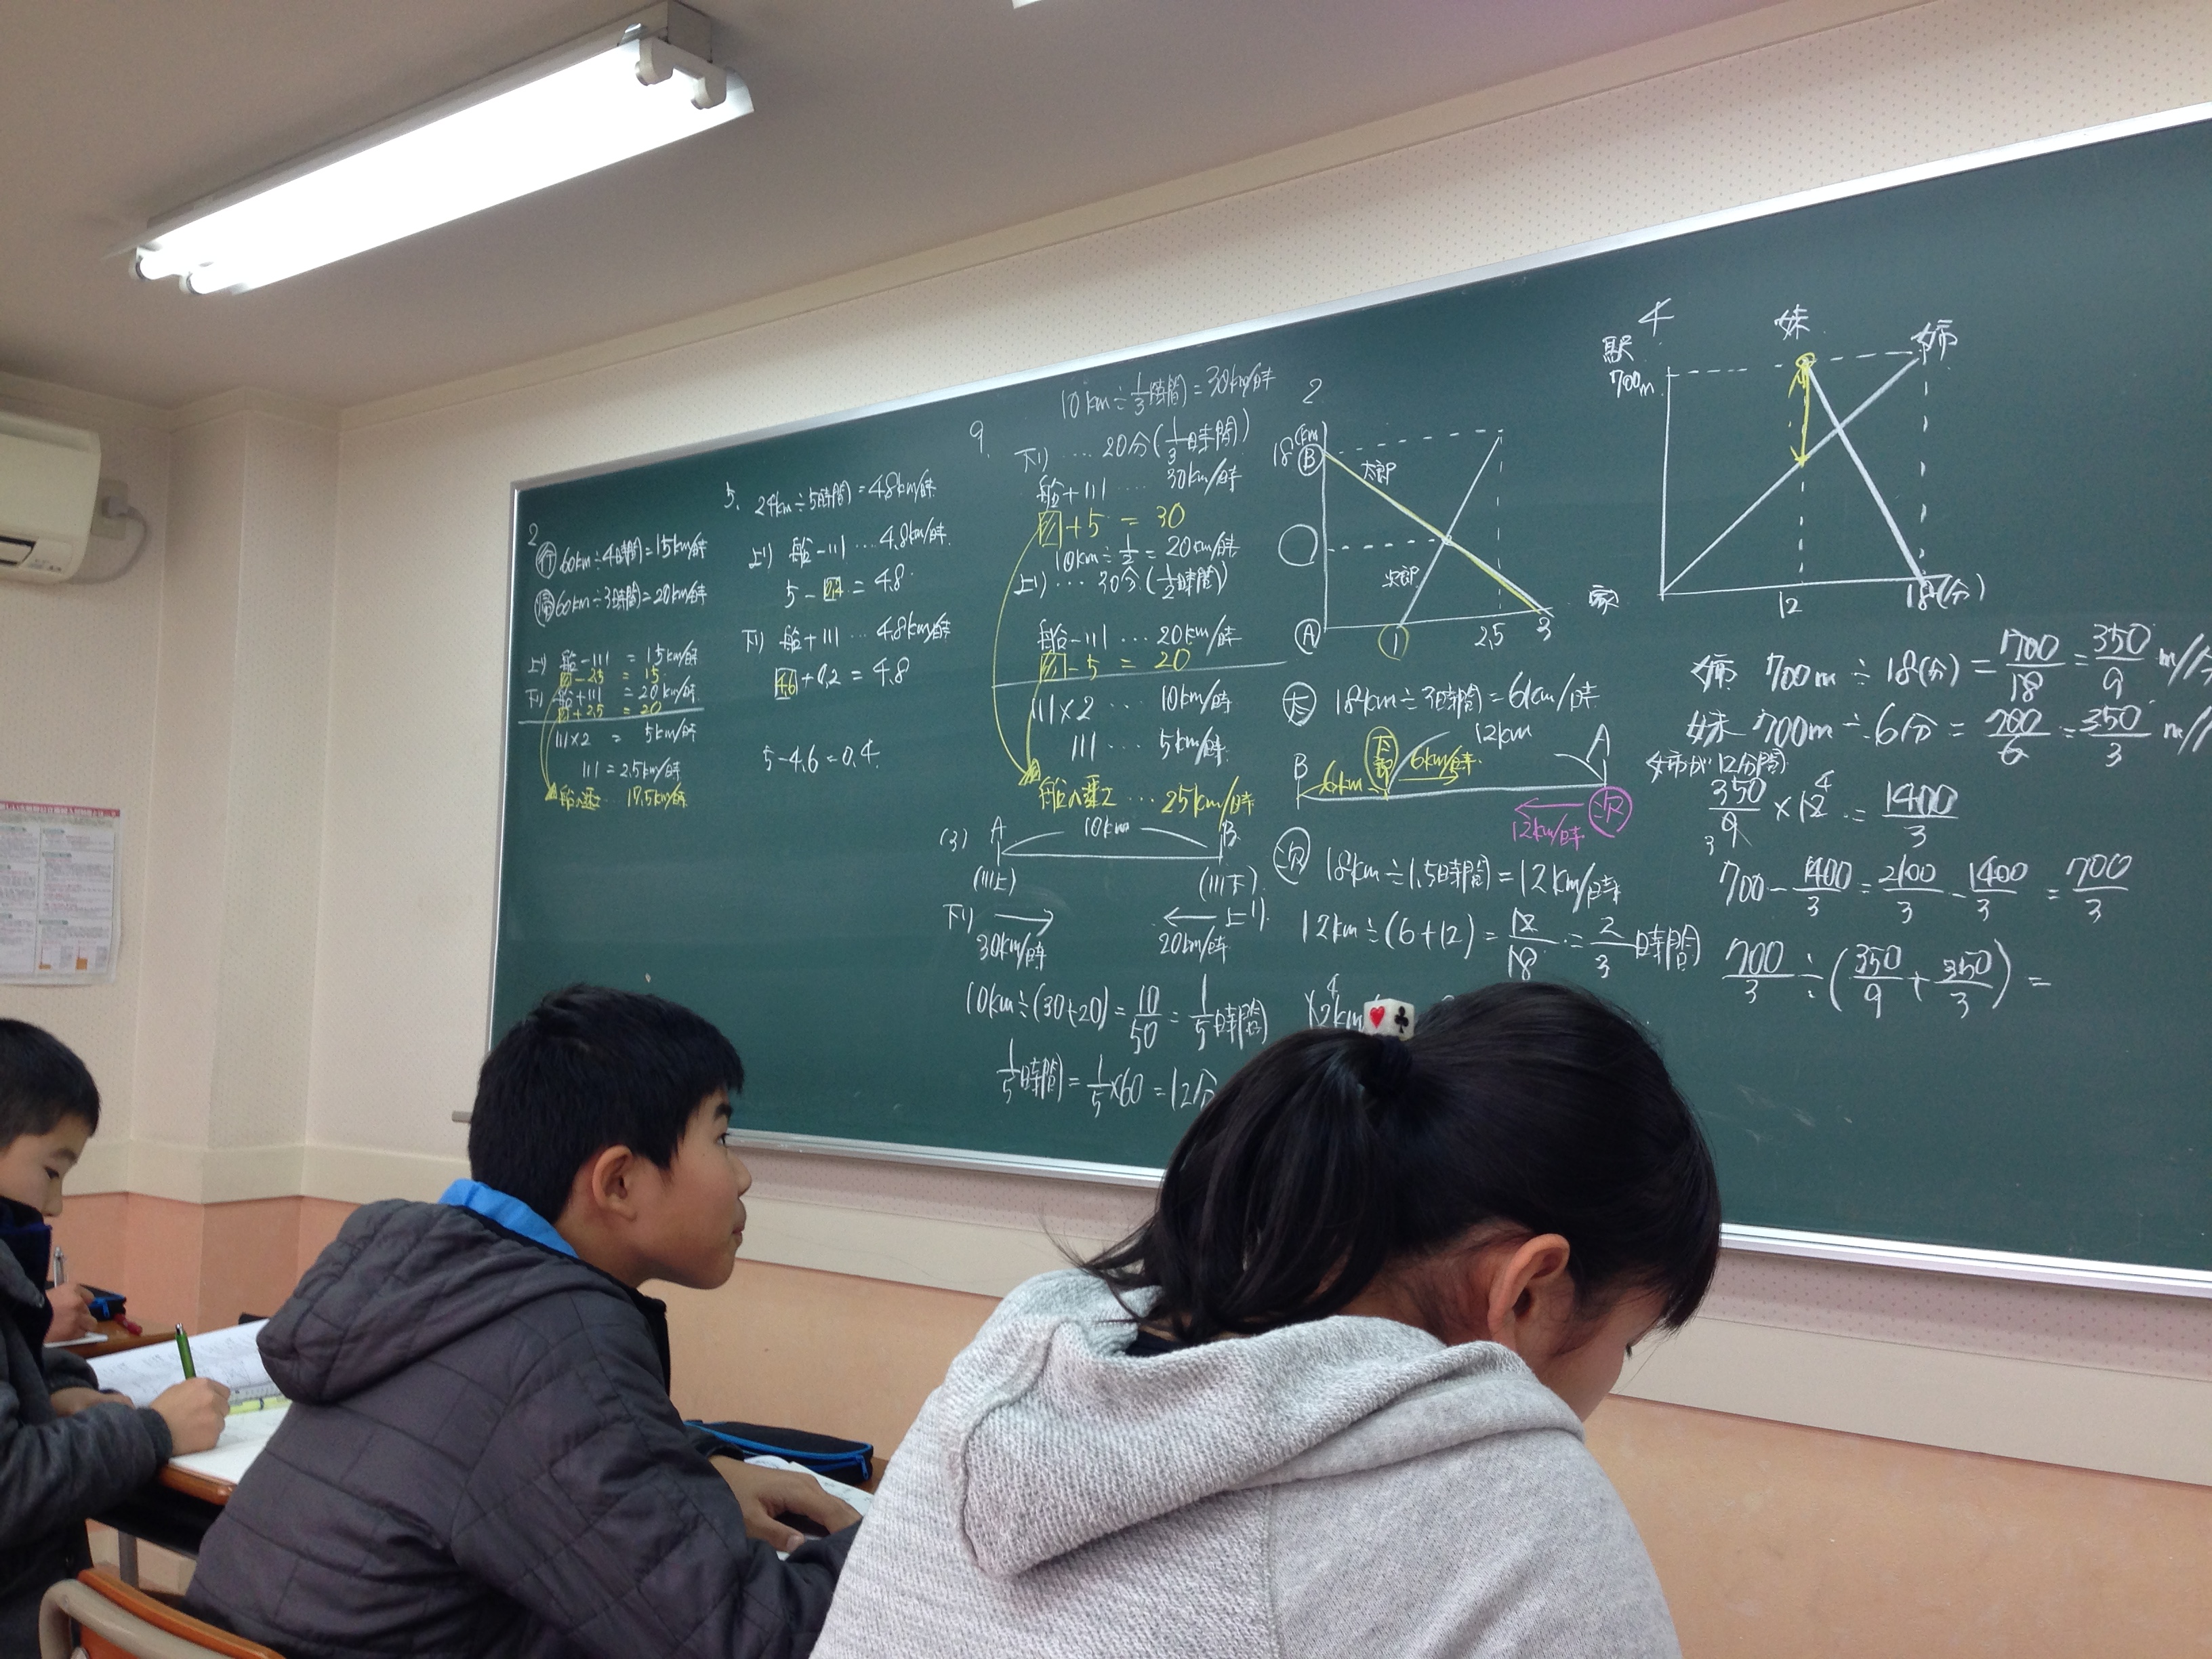 2
行 60km÷4時間=15km/時
帰 60km÷3時間=20km/時
上り 船-川 = 15km/時
-2.5 = 15
下り 船+川 = 20km/時
+2.5 = 20
川×2 = 5km/時
川=2.5km/時
船の速さ… 17.5km/時
5. 24km÷5時間=4.8km/時
上り 船-川 … 4.8km/時
5-0.2=4.8
下り 船+川 … 4.8km/時
4.6+0.2=4.8
5-4.6=0.4
9.
10km÷1/3時間=30km/時
下り …. 20分(1/3時間)
船+川 … 30km/時
+5 = 30
10km÷1/2=20km/時
上り … 30分(1/2時間)
船-川 … 20km/時
-5 = 20
川×2 … 10km/時
川 … 5km/時
船の速さ … 25km/時
(3) A 10km B
(川上) (川下)
下り 上り
30km/時 20km/時
10km÷(30+20)=10/50=1/5時間
1/5時間=1/5×60=12分
2
(km)
18 B
太郎
次郎
A 1 2.5 3
太 18km÷3時間=6km/時
B 6km 太郎 6km/時 12km A
12km/時 次
次 18km÷1.5時間=12km/時
12km÷(6+12)=12/18=2/3時間
4
駅 妹 姉
700m
家 12 18(分)
姉 700m÷18(分)=700/18=350/9 m/
妹 700m÷6分=700/6=350/3 m/
姉が12分間
350/9×12=1400/3
3 4
700-1400/3=2100/3-1400/3=700/3
700/3÷(350/9+350/3)=